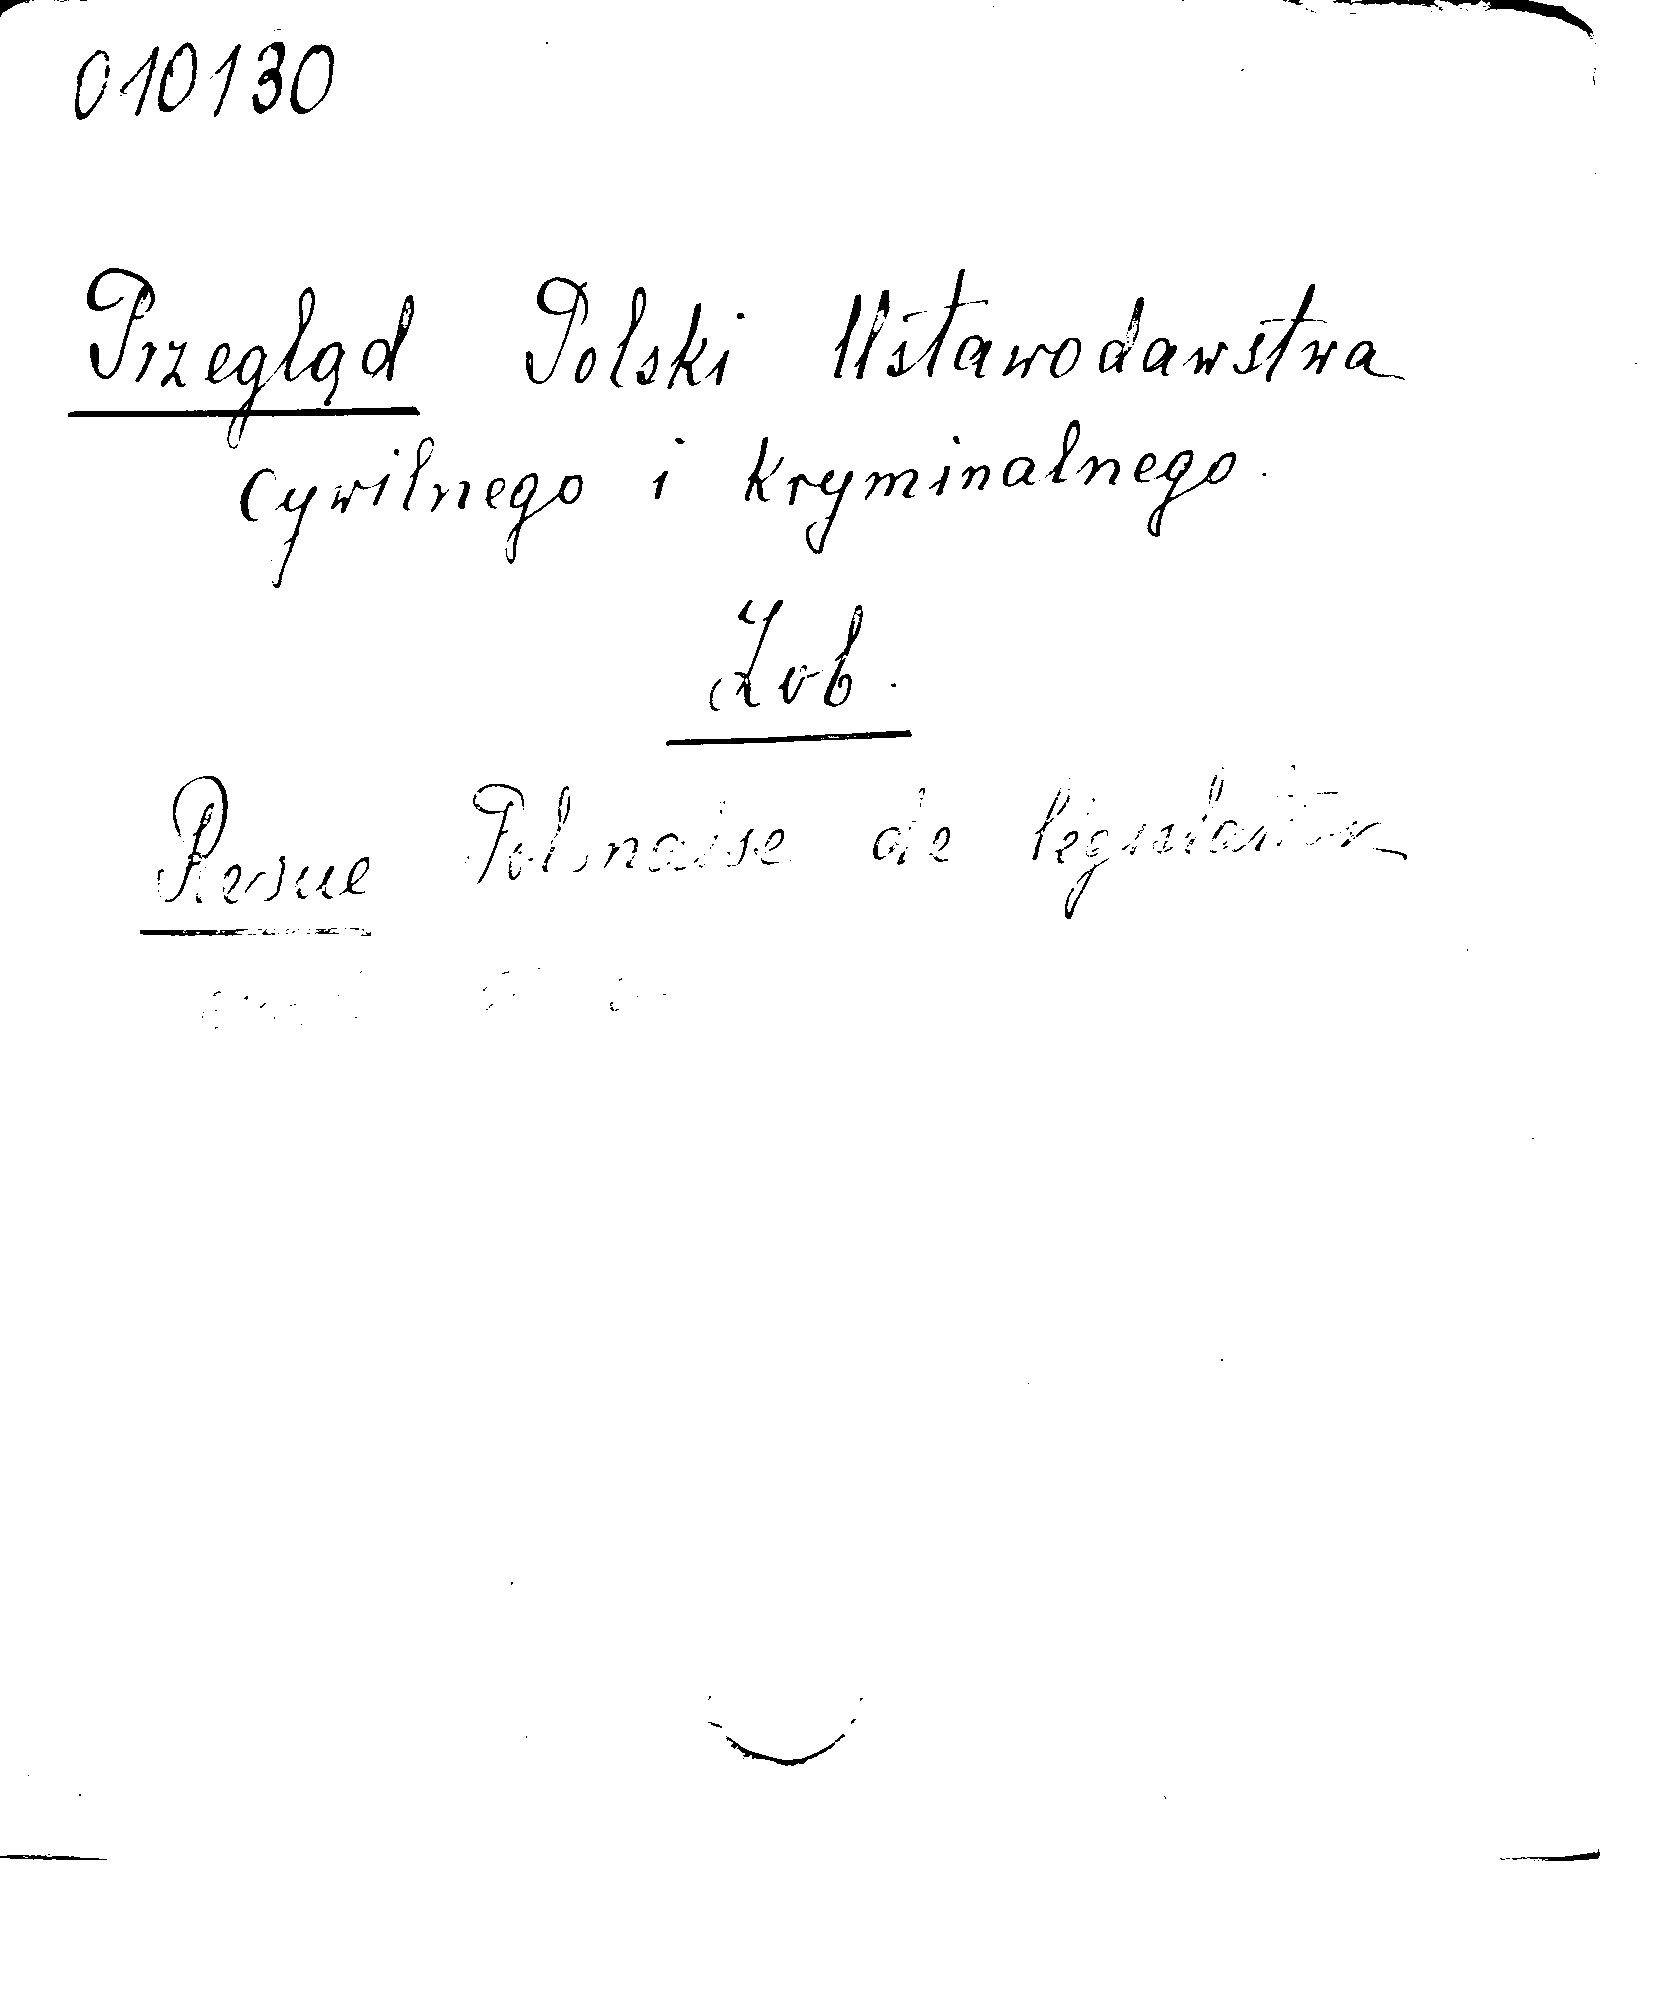 010130
Przegląd Polski Ustawodawstwa
cywilnego i kryminalnego.
Zob.
Revue Polonaise de législation